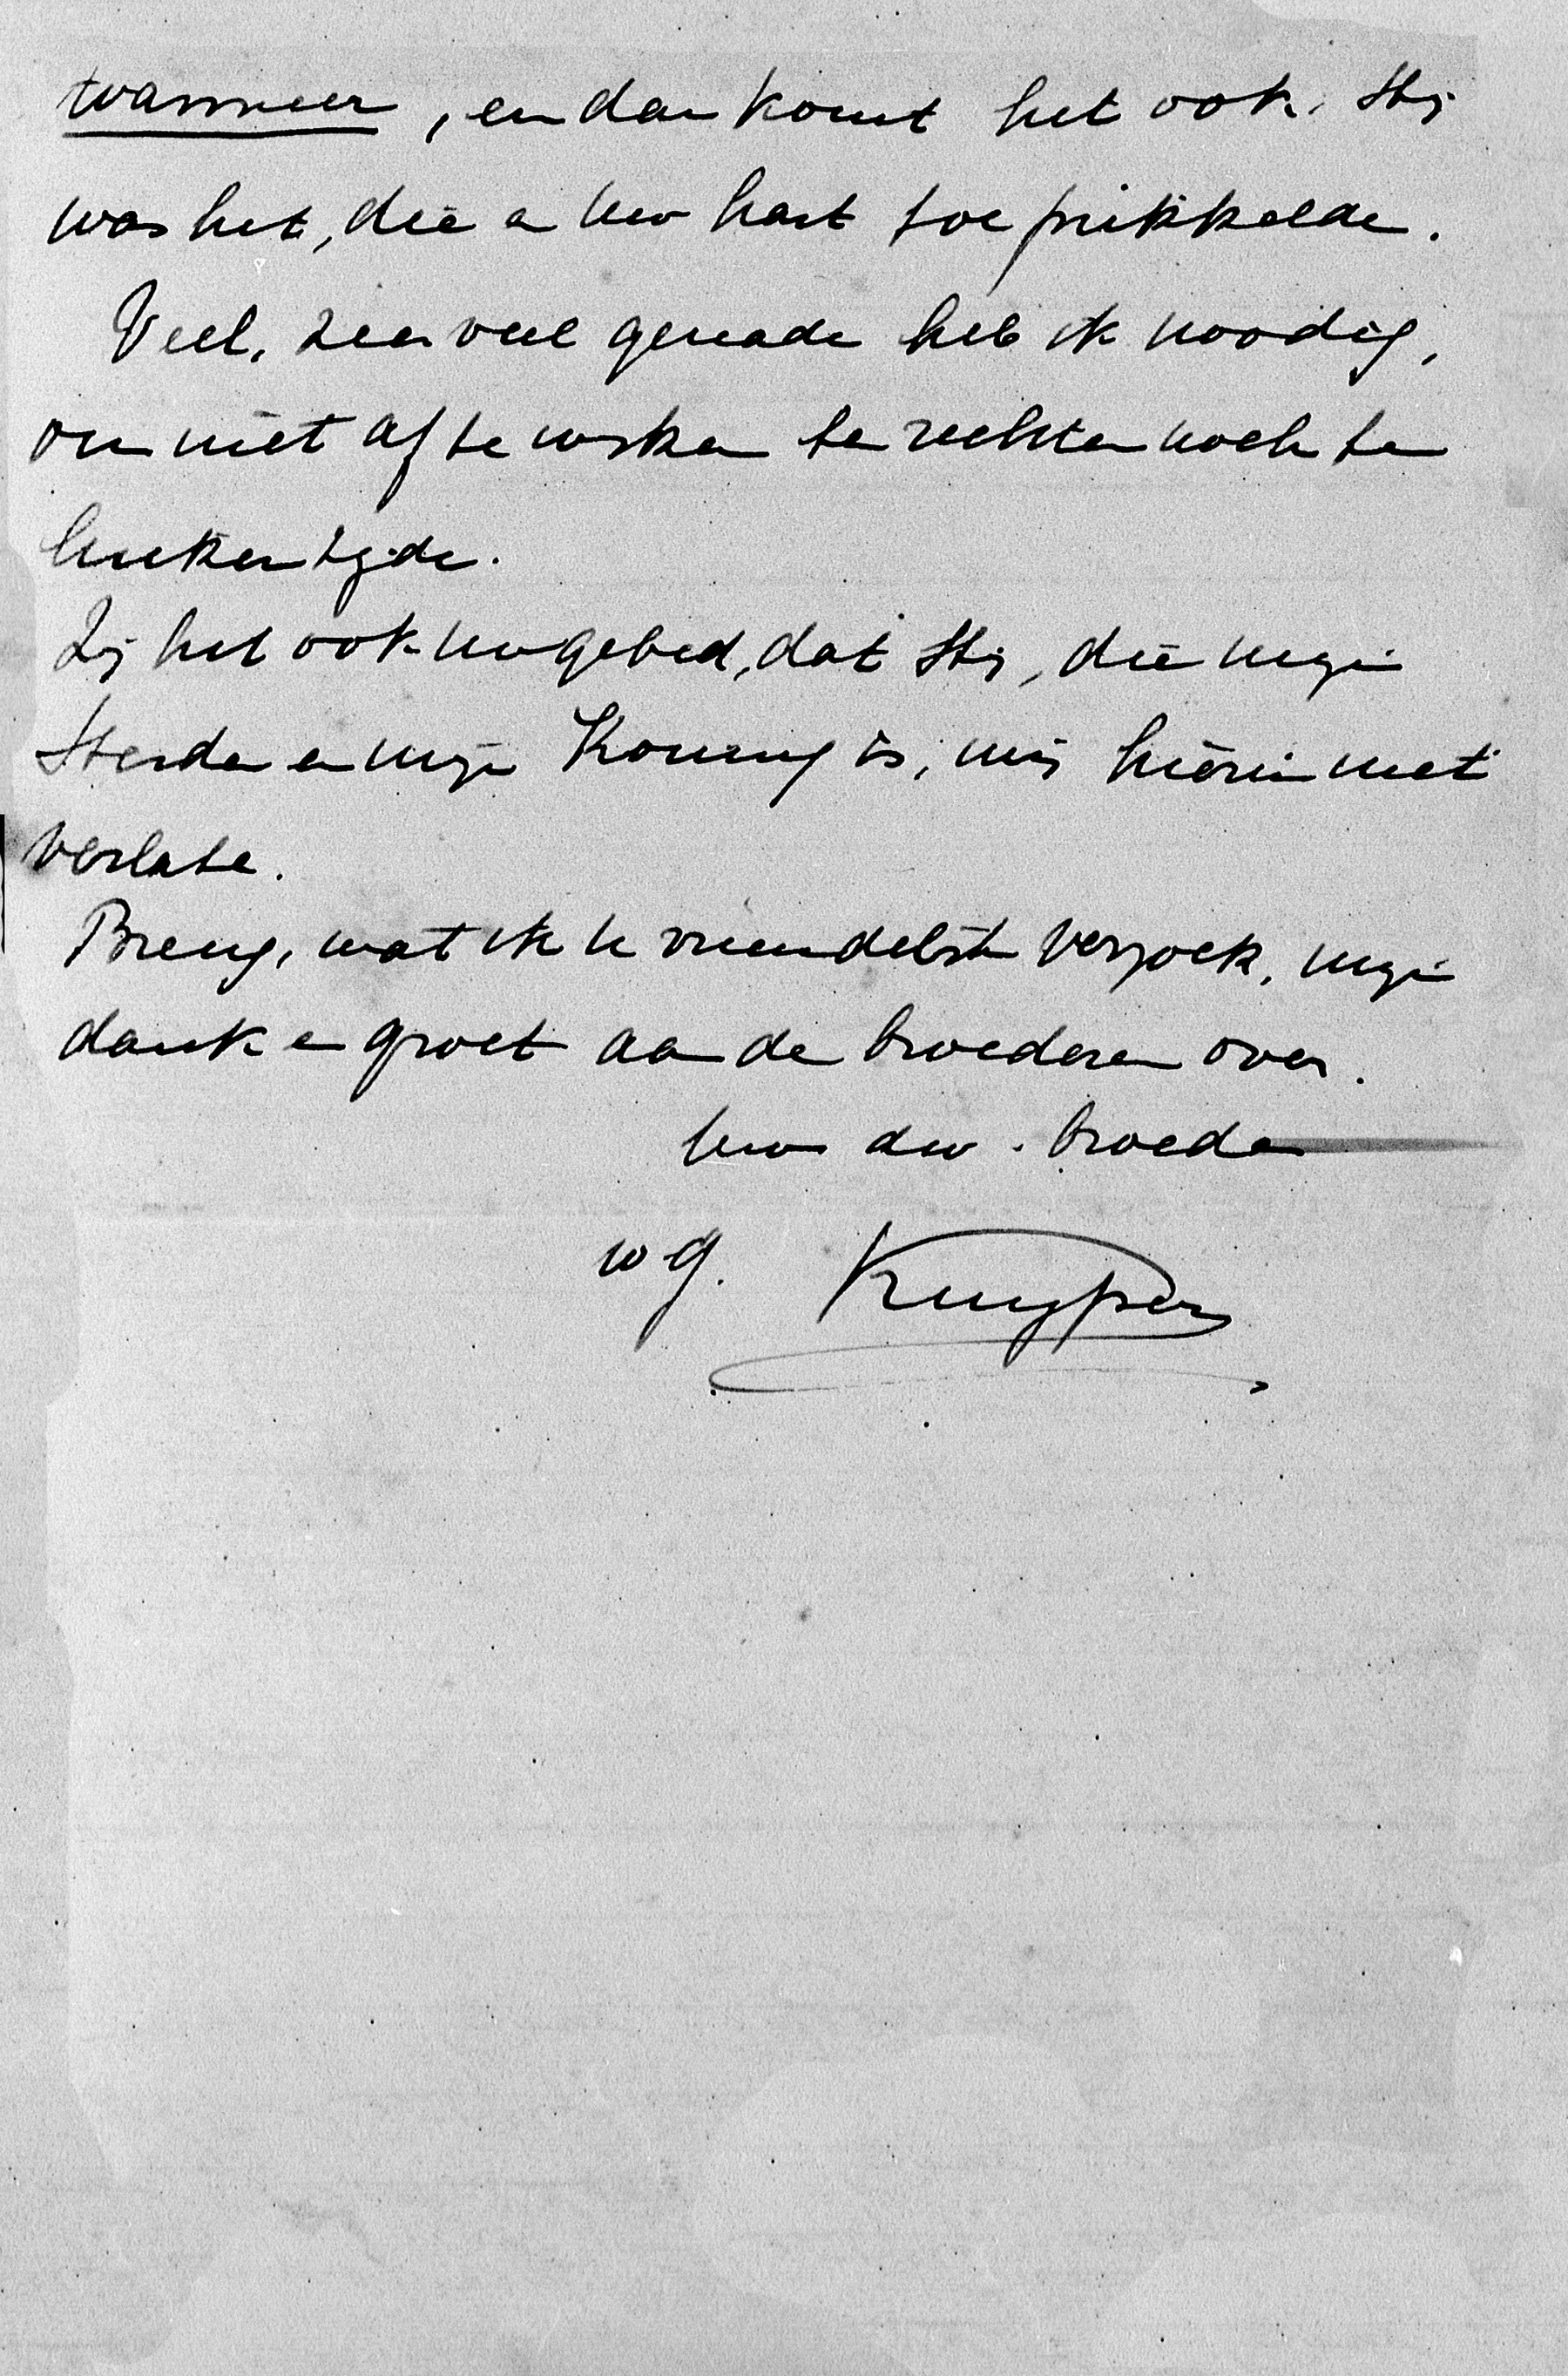 wanneer, en dan komt het ook. Hij
was het, die er uw hart toe prikkelde.
Veel, zeer veel genade heb ik noodig,
om niet af te wijken ter rechter noch ter
linkerzijde.
Zij het ook uw gebed, dat Hij, die mijn
Herder en mijn Koning is, mij hierin niet
verlate.
Breng, wat ik u vriendelijk verzoek, mijn
dank en groet aan de broederen over.
Uw dw. broeder
wg. Kuyper